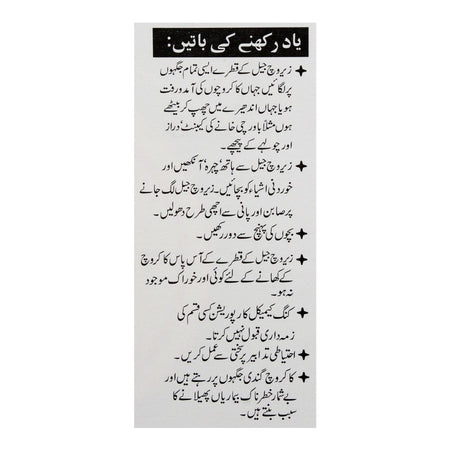 یاد رکھنے کی باتیں:
زیروچ جیل کے قطرے ایسی تمام جگہوں
پر لگائیں جہاں کاکروچوں کی آمد و رفت
ہو یا جہاں اندھیرے میں چھپ کر بیٹھے
ہوں مثلاً باورچی خانے کی کیبنٹ، دراز
اور چولہے کے پیچھے۔
زیروچ جیل سے ہاتھ، چہرہ، آنکھیں اور
خوردنی اشیاء کو بچائیں۔ زیروچ جیل لگ جانے
پر صابن اور پانی سے اچھی طرح دھولیں۔
بچوں کی پہنچ سے دور رکھیں۔
زیروچ جیل کے قطرے کے آس پاس کاکروچ
کے کھانے کے لئے کوئی اور خوراک موجود
نہ ہو۔
کنگ کیمیکل کارپوریشن کسی قسم کی
ذمہ داری قبول نہیں کرتا۔
احتیاطی تدابیر پر سختی سے عمل کریں۔
کاکروچ گندی جگہوں پر رہتے ہیں اور
بے شمار خطرناک بیماریاں پھیلانے کا
سبب بنتے ہیں۔